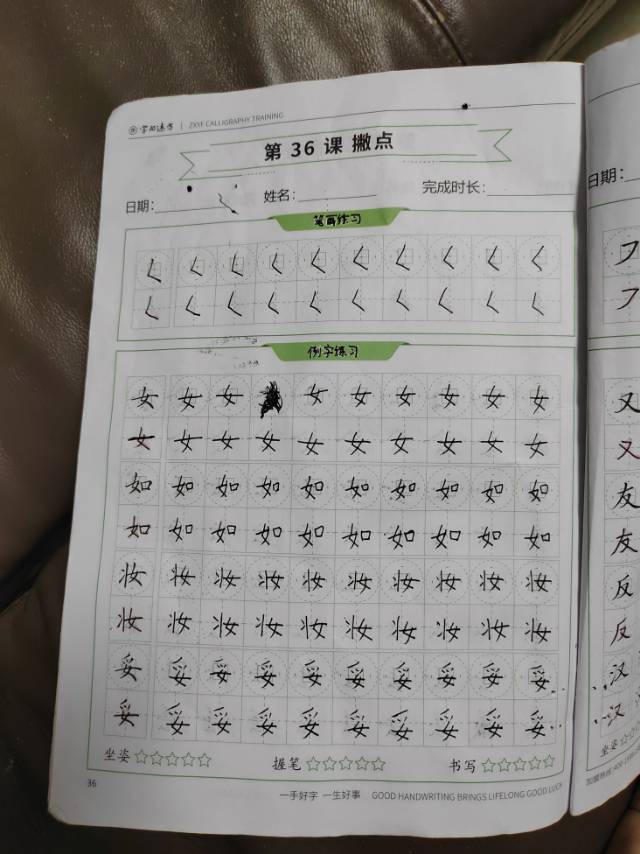 字如逢方 | ZXYF CALLIGRAPHY TRAINING
第 36 课 撇点
日期: 姓名: 完成时长:
笔画练习
例字练习
女 女 女 女 女 女 女 女 女
女 女 女 女 女 女 女 女 女 女
如 如 如 如 如 如 如 如 如 如
如 如 如 如 如 如 如 如 如 如
妆 妆 妆 妆 妆 妆 妆 妆 妆 妆
妆 妆 妆 妆 妆 妆 妆 妆 妆 妆
妥 妥 妥 妥 妥 妥 妥 妥 妥 妥
妥 妥 妥 妥 妥 妥 妥 妥 妥 妥
坐姿☆☆☆☆☆ 握笔☆☆☆☆☆ 书写☆☆☆☆☆
36
一手好字 一生好事 GOOD HANDWRITING BRINGS LIFELONG GOOD LUCK
日期:
又
又
友
友
反
反
汉
汉
坐姿